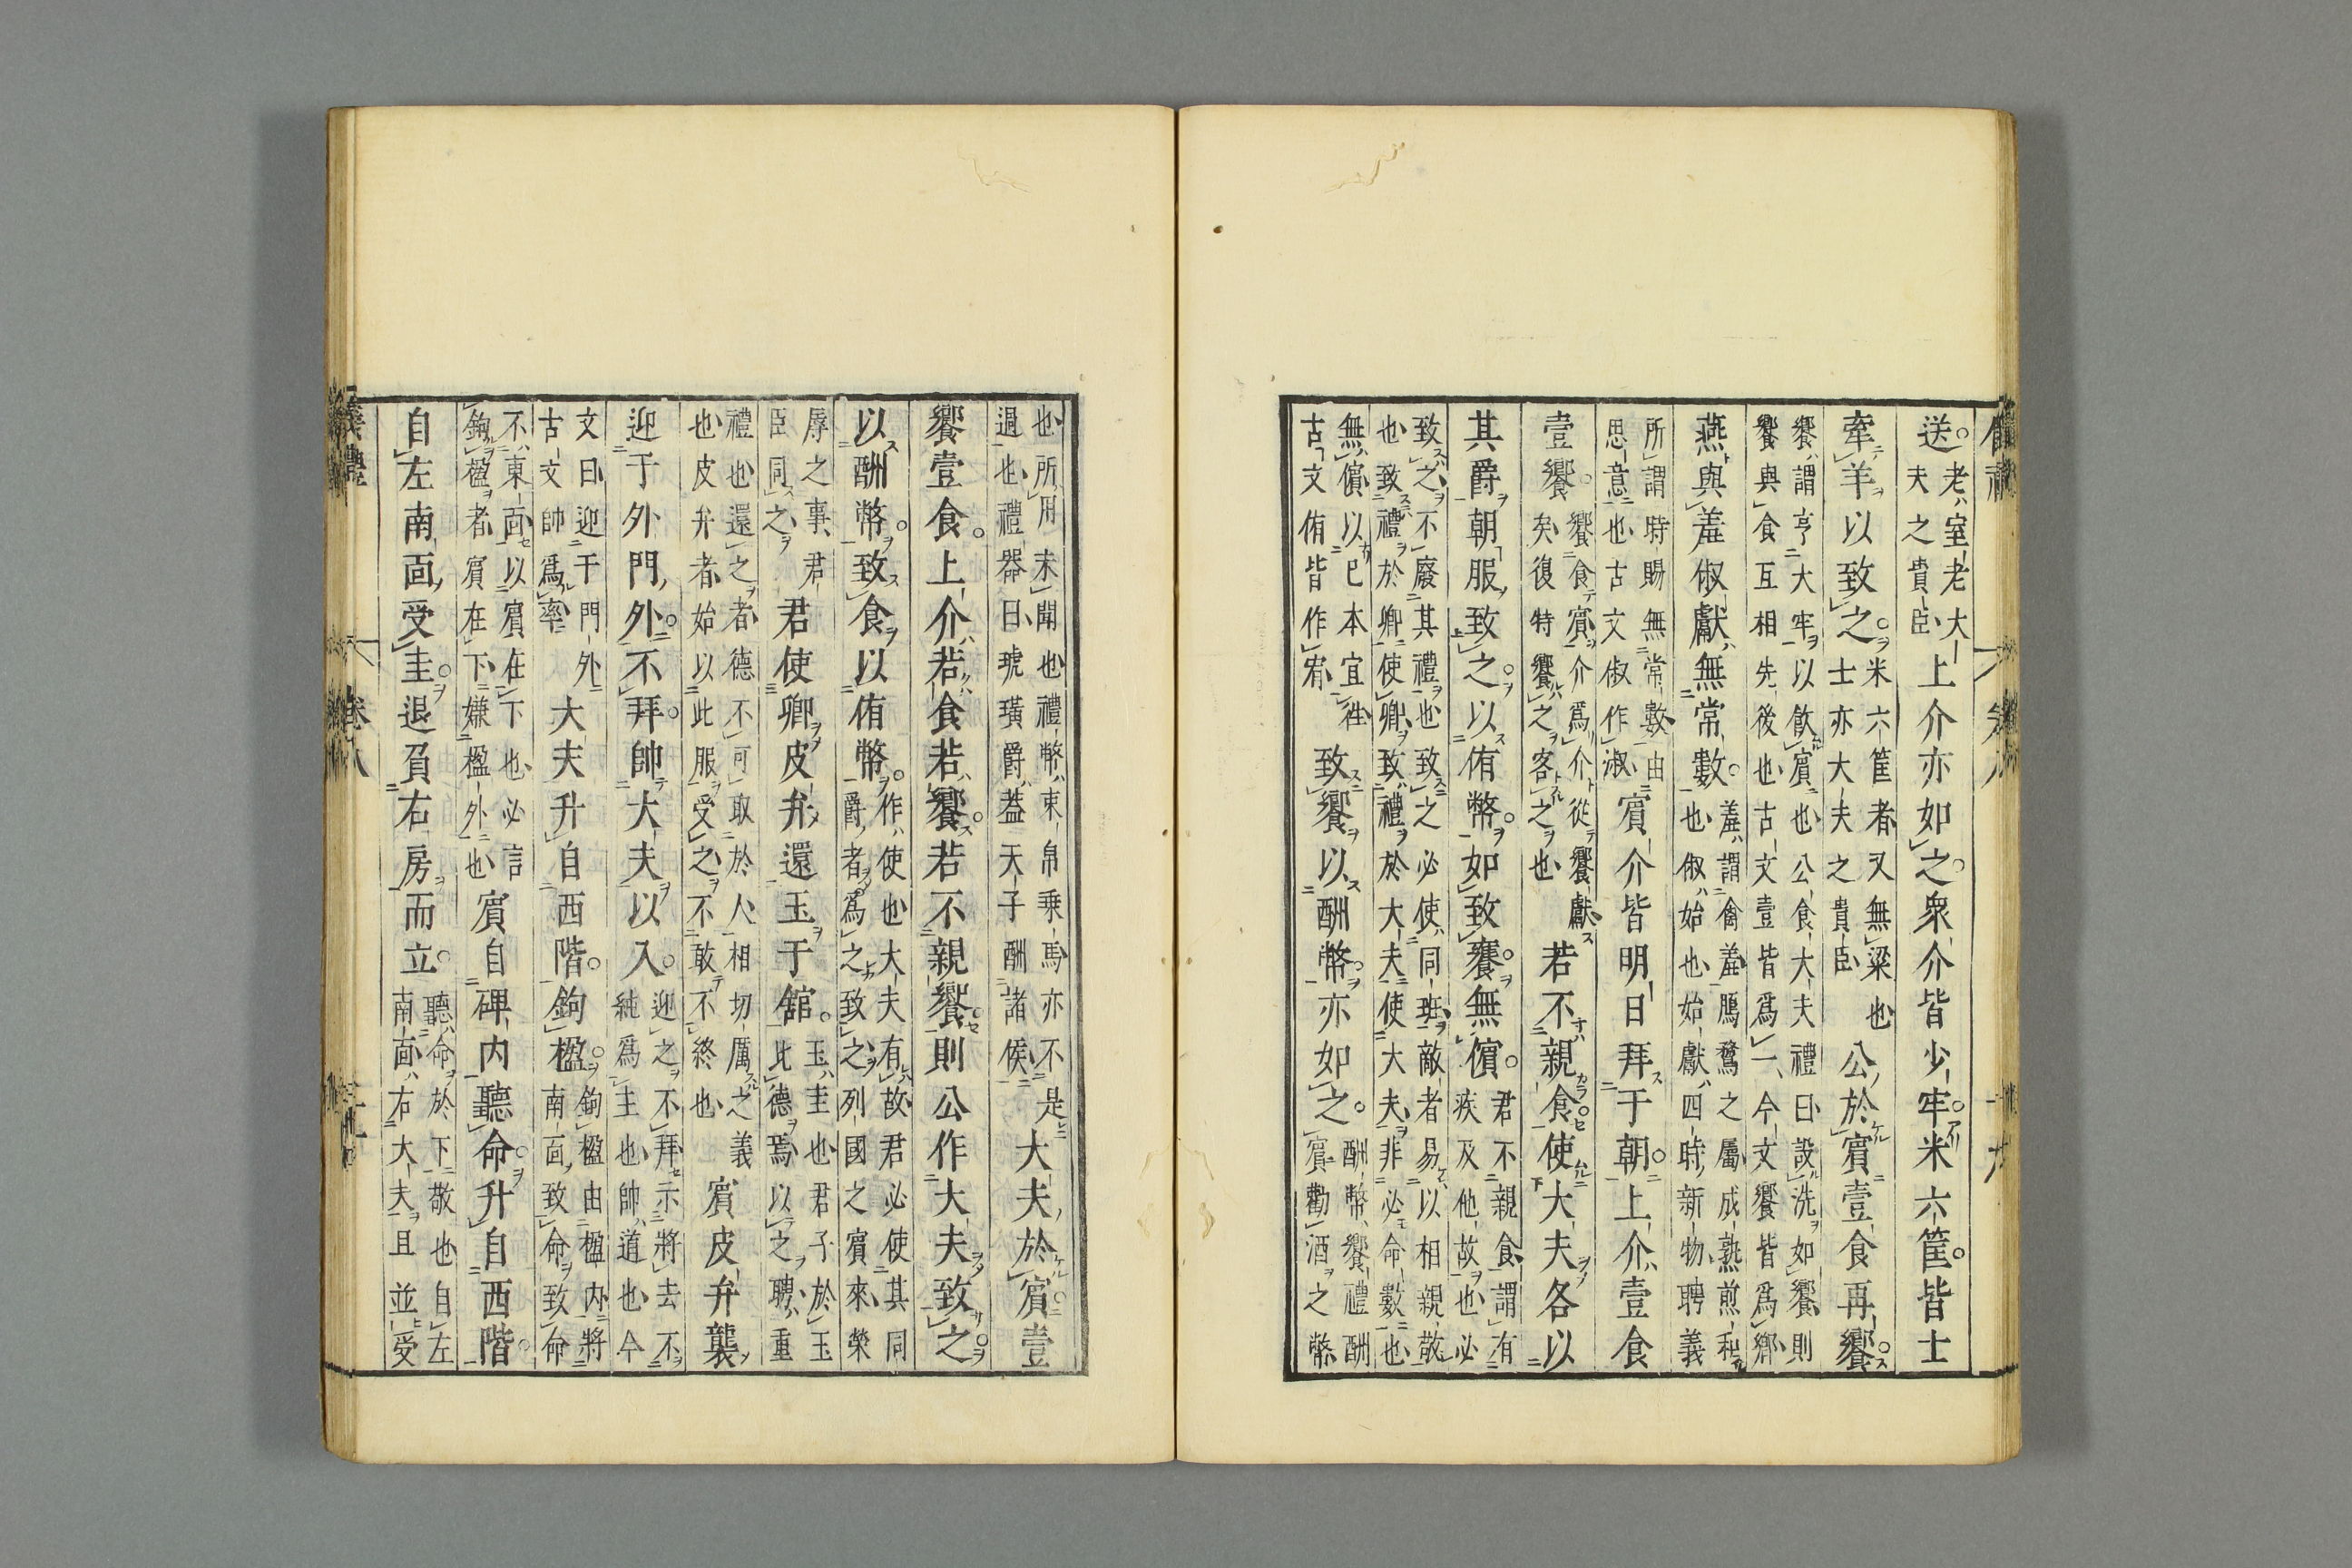 送老室老大夫之貴臣上介亦如之衆介皆少牢米六筐皆士
牽羊以致之米六筐者又無粱也士亦大夫之貴臣公於賓壹食再饗
饗謂亨大牢以飲賓也公食大夫禮曰設洗如饗則饗與食互相先後也古文壹皆爲一今文饗皆爲鄉
燕與羞俶獻無常數羞謂禽羞鴈鶩之屬成熟煎和也俶始也始獻四時新物聘義
所謂時賜無常數由思意也古文俶作淑賓介皆明日拜于朝上介壹食
壹饗饗食賓介爲介從饗獻矣復特饗之客之也若不親食使大夫各以
其爵朝服致之以侑幣如致饔無儐君不親食謂有疾及他故也必
致之不廢其禮也致之必使同班敵者易以相親敬也致禮於卿使卿致禮於大夫使大夫非必命數也
無儐以已本宜往古文侑皆作宥致饗以酬幣亦如之酬幣饗禮酬賓勸酒之幣
也所用未聞也禮幣束帛乗馬亦不是過也禮器曰琥璜爵蓋天子酬諸侯大夫於賓壹
饗壹食上介若食若饗若不親饗則公作大夫致之
以酬幣致食以侑幣作使也大夫有故君必使其同爵者爲之致之列國之賓來榮
辱之事君臣同之君使卿皮弁還玉于館玉圭也君子於玉比德焉以之聘重
禮也還之者德不可取於人相切厲之義也皮弁者始以此服受之不敢不終也賓皮弁襲
迎于外門外不拜帥大夫以入迎之不拜示將去不純爲主也帥道也今
文曰迎于門外古文帥爲率大夫升自西階鉤楹鉤楹由楹内將南面致命致命
不東面以賓在下也必言鉤楹者賓在下嫌楹外也賓自碑内聽命升自西階
自左南面受圭退負右房而立聽命於下敬也自左南面右大夫且並受